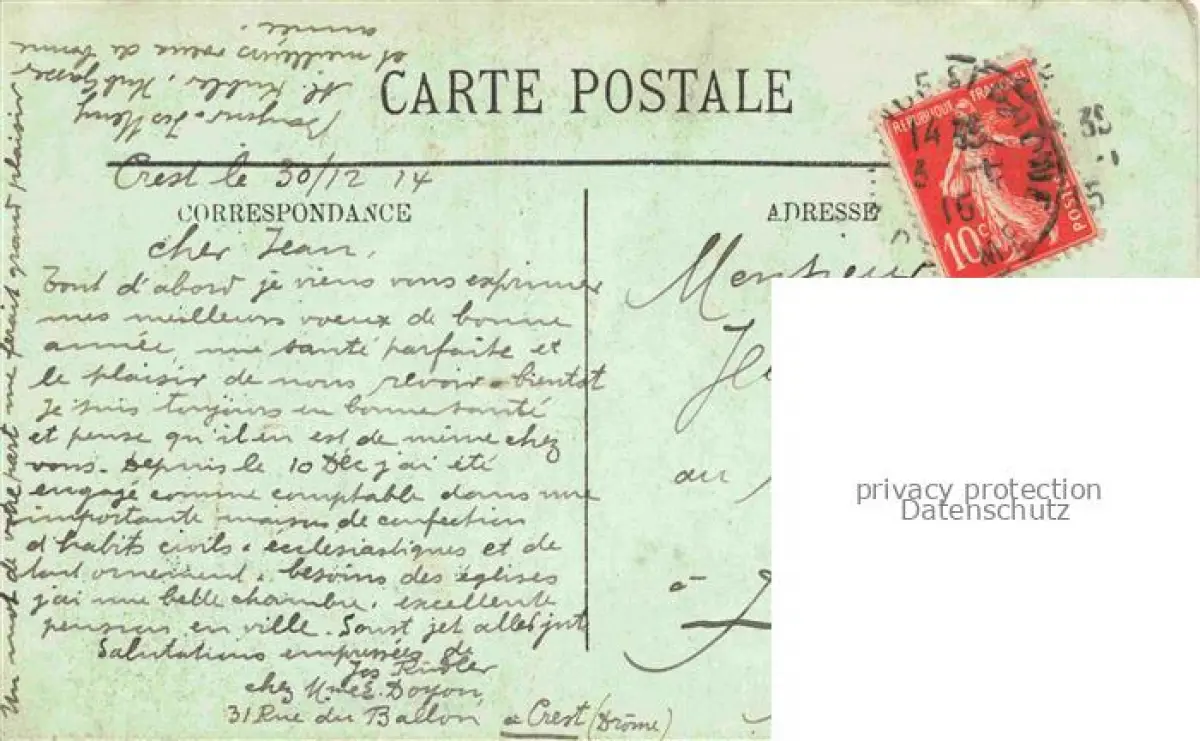 CARTE POSTALE
Crest le 30/12 14
CORRESPONDANCE
cher Jean,
Tout d'abord je viens vous exprimer
mes meilleurs voeux de bonne
année, une santé parfaite et
le plaisir de nous revoir bientot
Je suis toujours en bonne santé
et pense qu'il en est de même chez
vous. Depuis le 10 Déc j'ai été
engagé comme comptable dans une
importante maison de confection
d'habits civils. écclesiastiques et de
tout ornement. besoins des églises
j'ai une belle chambre. excellente
pension en ville. Sonst jet alles gut
Salutations empressées de
Jos Kubler
chez Mme E. Doyon,
31 Rue du Ballon à Crest (Drôme)
Un mot de votre part me ferait grand plaisir
Bonjour
M. Kubler,
et meilleurs voeux de bonne
année.
ADRESSE
Monsieur
au
à
REPUBLIQUE FRANÇAISE
POSTES
10c
privacy protection
Datenschutz